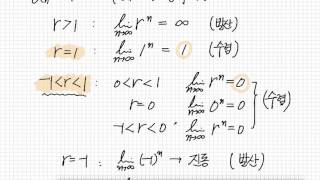 r>1 : lim n→∞ rⁿ = ∞ (발산)
r=1 : lim n→∞ 1ⁿ = 1 (수렴)
-1<r<1 : 0<r<1 lim n→∞ rⁿ=0
r=0 lim n→∞ 0ⁿ=0 (수렴)
-1<r<0 lim n→∞ rⁿ=0
r=-1 : lim n→∞ (-1)ⁿ → 진동 (발산)